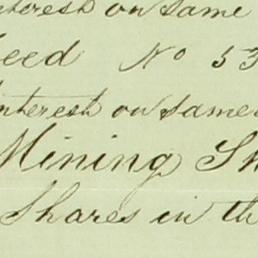 nterest on same
eed No 53
nterest on same
Mining Sh
Shares in th